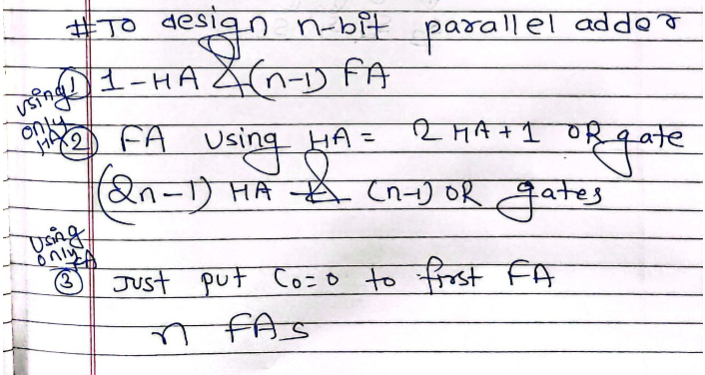 # To design n-bit parallel adder
using ① 1-HA & (n-1) FA
only
HA ② FA using HA = 2 HA + 1 OR gate
(2n-1) HA & (n-1) OR gates
Using
only FA
③ Just put C0=0 to first FA
n FAs